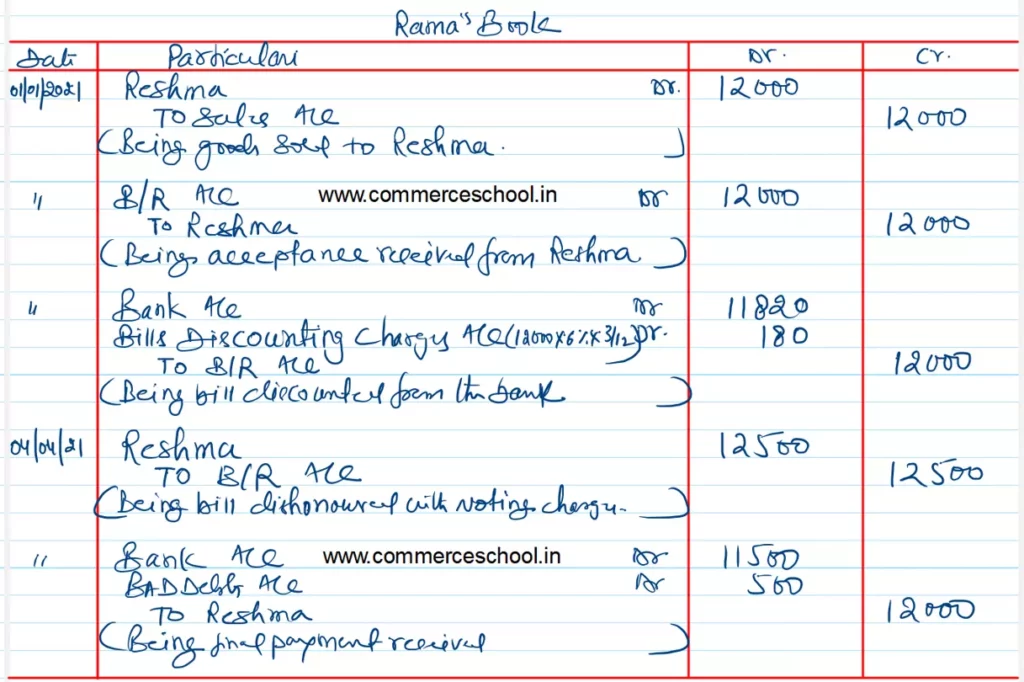 Rama's Book
Date Particulars Dr. Cr.
01/01/2021 Reshma Dr. 12000
To Sales A/c 12000
(Being goods sold to Reshma.)
" B/R A/c www.commerceschool.in Dr 12000
To Reshma 12000
(Being acceptance received from Reshma)
" Bank A/c Dr 11820
Bills Discounting Charges A/c (12000x6%x3/12) Dr. 180
To B/R A/c 12000
(Being bill discounted from the bank)
04/04/21 Reshma 12500
To B/R A/c 12500
(Being bill dishonoured with noting charge.)
" Bank A/c www.commerceschool.in Dr 11500
BAD Debts A/c Dr 500
To Reshma 12000
(Being final payment received)